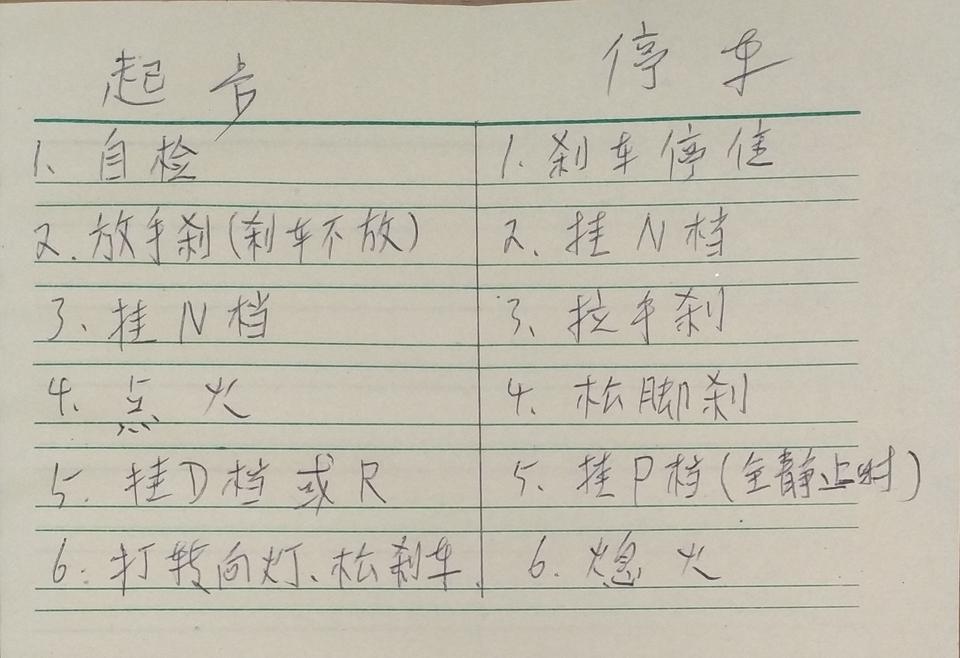 起步
1. 自检
2. 放手刹(刹车不放)
3、挂N档
4. 点火
5. 挂D档或R
6. 打转向灯、松刹车
停车
1. 刹车停住
2. 挂N档
3、拉手刹
4、松脚刹
5、挂P档(全静止时)
6. 熄火